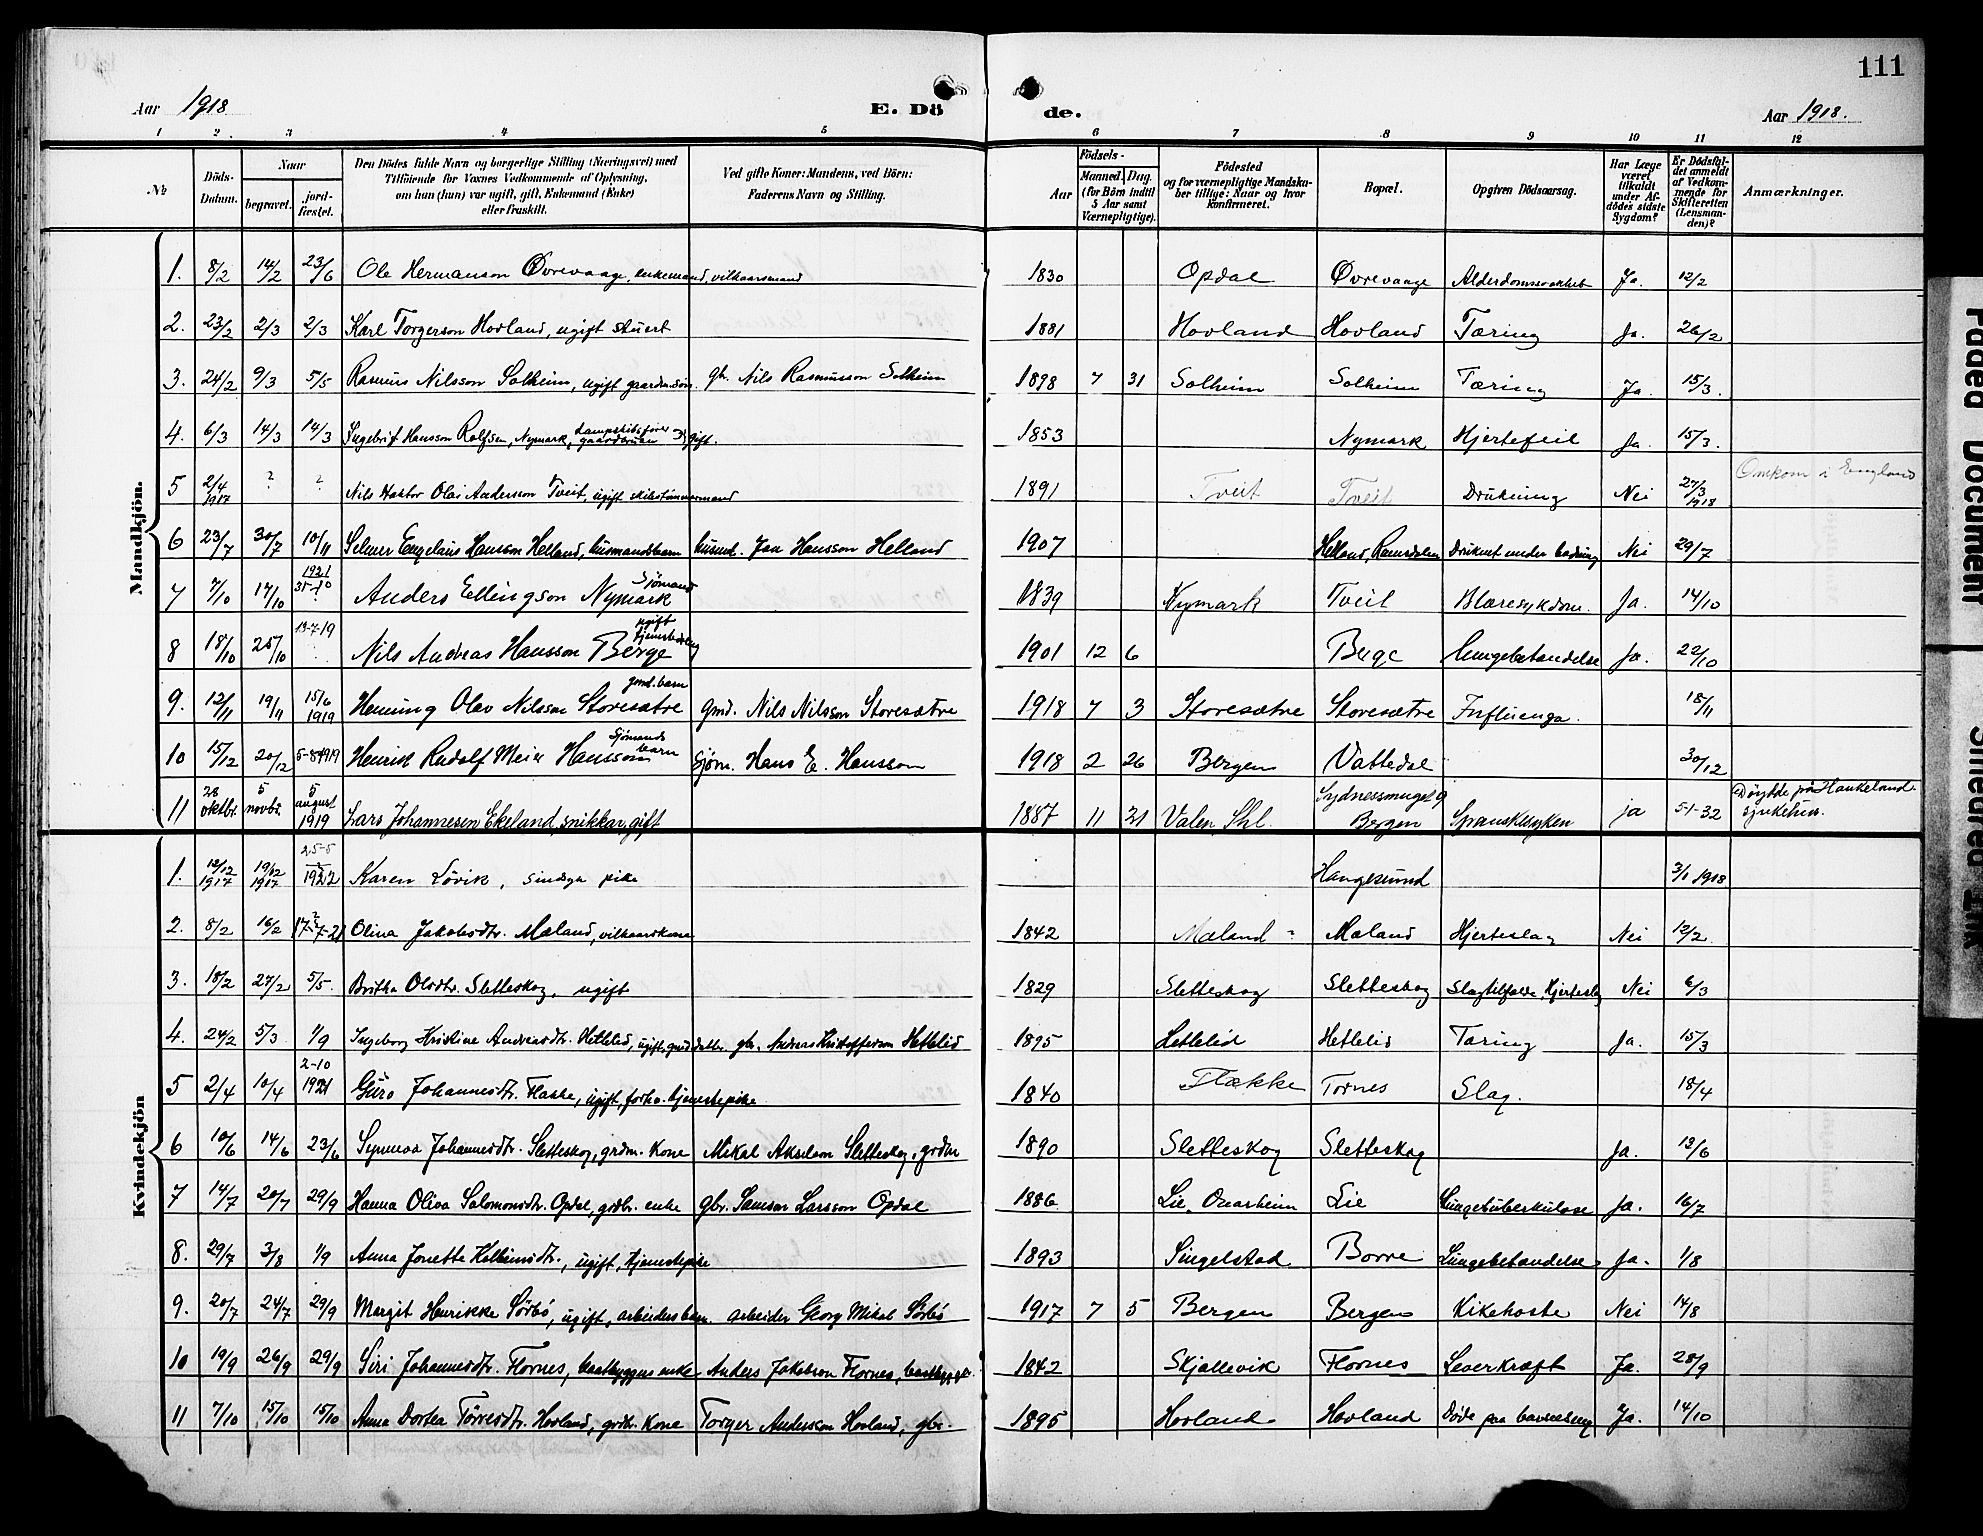 111
Aar 1918. E. Dö de. Aar 1918.
1 2. 3 4 5 6 7 8 9 10 11 12
No Döds-Datum. Naar begravet. jordfæstet. Den Dödes fulde Navn og borgerlige Stilling (Næringsvei) med Tilföiende for Voxnes Vedkommende af Oplysning, om han (hun) var ugift, gift, Enkemand (Enke) eller fraskilt. Ved gifte Koner: Mandens, ved Börn: Faderens Navn og Stilling. Födsels- Aar Maaned. Dag. (for Börn indtil 5 Aar samt Værnepligtige). Födested og for værnepligtige Mandskaber tillige: Naar og hvor Konfirmeret. Bopæl. Opgiven Dödsaarsag. Har Læge været tilkaldt under Afdödes sidste Sygdom? Er Dödsfaldet anmeldt af Vedkommende for Skifteretten (Lensmanden)? Anmærkninger.
Mandkjön.
1. 8/2 14/2 23/6 Ole Hermanson Øvrevaage, enkemand, vilkaarsmand 1830 Opdal Øvrevaage Alderdomssvakhet Ja. 12/2
2. 23/2 2/3 2/3 Karl Torgerson Hovland, ugift stuert 1881 Hovland Hovland Tæring Ja. 26/2
3. 24/2 9/3 5/5 Rasmus Nilsson Solheim, ugift gaardm.søn. gb. Nils Rasmusson Solheim 1898 7 31 Solheim Solheim Tæring Ja. 15/3.
4. 6/3 14/3 14/3 Ingebrit Hansson Rolfsen, Nymark, dampskibsfører gaardbruker, gift. 1853 Nymark Hjertefeil Ja. 15/3.
5 2/4 1917 ? ? Nils Olai Andersson Tveit, ugift skibstømmermand 1891 Tveit Tveit Drukning Nei 27/3 1918 Omkom i England
6 23/7 30/7 10/11 Selmer Engelaus Hansson Helland, husmandsbarn husmd. Jan Hansson Helland 1907 Helland, Druknet under badning Nei 29/7
7 7/10 17/10 1921 31-10 Anders Ellingson Nymark Sjømand 1839 Nymark Tveit Blæresykdom. Ja. 14/10
8 18/10 25/10 13-7-19 Nils Andreas Hansson Berge ugift 1901 12 6 Berge Lungebetændelse Ja. 22/10
9. 12/11 19/11 15/6 1919 Henning Olav Nilsson Storesætre gmd. barn gmd. Nils Nilsson Storesætre 1918 7 3 Storesætre Storesætre Influenza. 18/11
10 15/12 20/12 5-8-1919 Henrik Rudolf Meier Hansson Sjømands barn Sjøm. Hans E. Hansson 1918 2 26 Bergen Vattedal 30/12
11 28 oktbr. 5 novbr. 5 august 1919 Lars Johannesen Ekeland, snikkar, gift 1887 11 21 Valen Shl. Sydnessmuget 9 Bergen Spanskesyken ja 5-1-32 Døydde på Haukeland sjukehus.
Kvindekjön
1. 12/12 1917 19/12 1917 25-5 1922 Karen Løvik, sindsyg pike Haugesund 3/1 1918
2. 8/2 16/2 17-7-21 Olina Jakobsdtr. Mæland, vilkaarskone 1842 Mæland ? Mæland Hjerteslag Nei 12/2
3. 18/2 27/2 5/5. Britha Olsdtr. Sletteskog, ugift 1829 Sletteskog Sletteskog Slagtilfælde, Hjerteslag Nei 6/3
4. 24/2 5/3. 1/9 Ingeborg Kristine Andreasdtr. Hetleflid, ugift, gmd.datter. gbr. Andreas Kristofferson Hetlelid 1895 Hetlelid Hetlelid Tæring Ja. 15/3
5 2/4 10/4 2-10 1921 Guro Johannesdtr. Flakke, ugift, forhv. tjenestepike 1840 Flække Tornes Slag. 18/4
6 10/6 14/6 23/6 Synneva Johannesdtr. Sletteskog, grdm. kone Mikal Akselson Sletteskog, grdm 1890 Sletteskog Sletteskog Ja. 13/6
7 14/7 20/7 29/9 Hanna Oliva Salomonsdtr. Opdal, grdbr. enke gbr. Samson Larsson Opdal 1886 Lie, Onarheim Lie Lungetuberkulose Ja. 16/7
8. 29/7 3/8 1/9 Anna Jonette, ugift, tjenestepike 1893 Singelstad Borre Lungebetændelse Ja. 1/8
9. 20/7 24/7 29/9 Margit Henrikke Sørbø, ugift, arbeidersbarn. arbeider Georg Mikal Sørbø 1917 7 5 Bergen Bergen Kikehoste Nei 14/8
10 19/9 26/9 29/9 Siri Johannesdtr. Flornes, baatbyggers enke Anders Jakobson Flornes, baatbygger 1842 Skjellevik Flornes Leverkræft Ja. 28/9
11 7/10 15/10 15/10 Anna Dortea Tørresdtr. Hovland, grdb. kone Torger Andersson Hovland, gbr. 1895 Hovland. Hovland Døde paa barnseseng Ja. 14/10
Faded Document
Smeared Ink